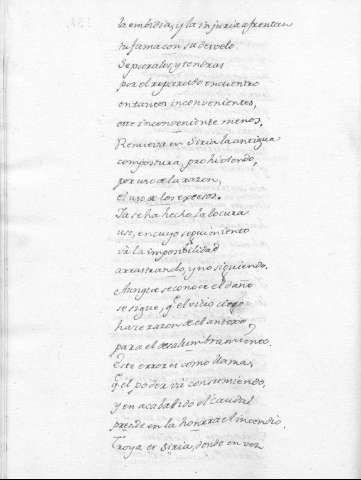 la embidia, y la injuria afrentan
tu fama con su desvelo.
Separalos, y tendras
por el reparado encuentro
en tantos inconvenientes,
este inconveniente menos.
Renueva en Siria la antigua
compostura, prohiviendo,
por uso de la razon,
el uso de los excesos.
Ya se ha hecho la locura
uso, en cuyo seguimiento
va la imposibilidad
arrastrando, y no siguiendo.
Aunque se conoce el daño
se sigue, q.e el vicio ciego
hace razon de el antojo,
para el deslumbramiento.
Este error es como llama,
q.e el poder va consumiendo,
y en acabando el caudal
prende en la honrra el incendio.
Troya es Siria, donde en vez